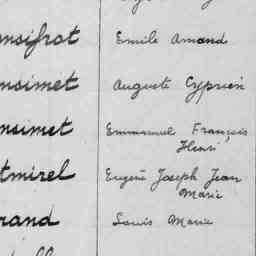 nsifrot Emile Amand
nsimet Auguste Cyprien
nsimet Emmanuel François
Henri
tmirel Eugène Joseph Jean
Marie
rand Louis Marie